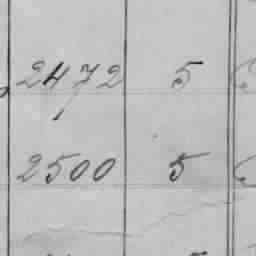 2472 5
2500 5